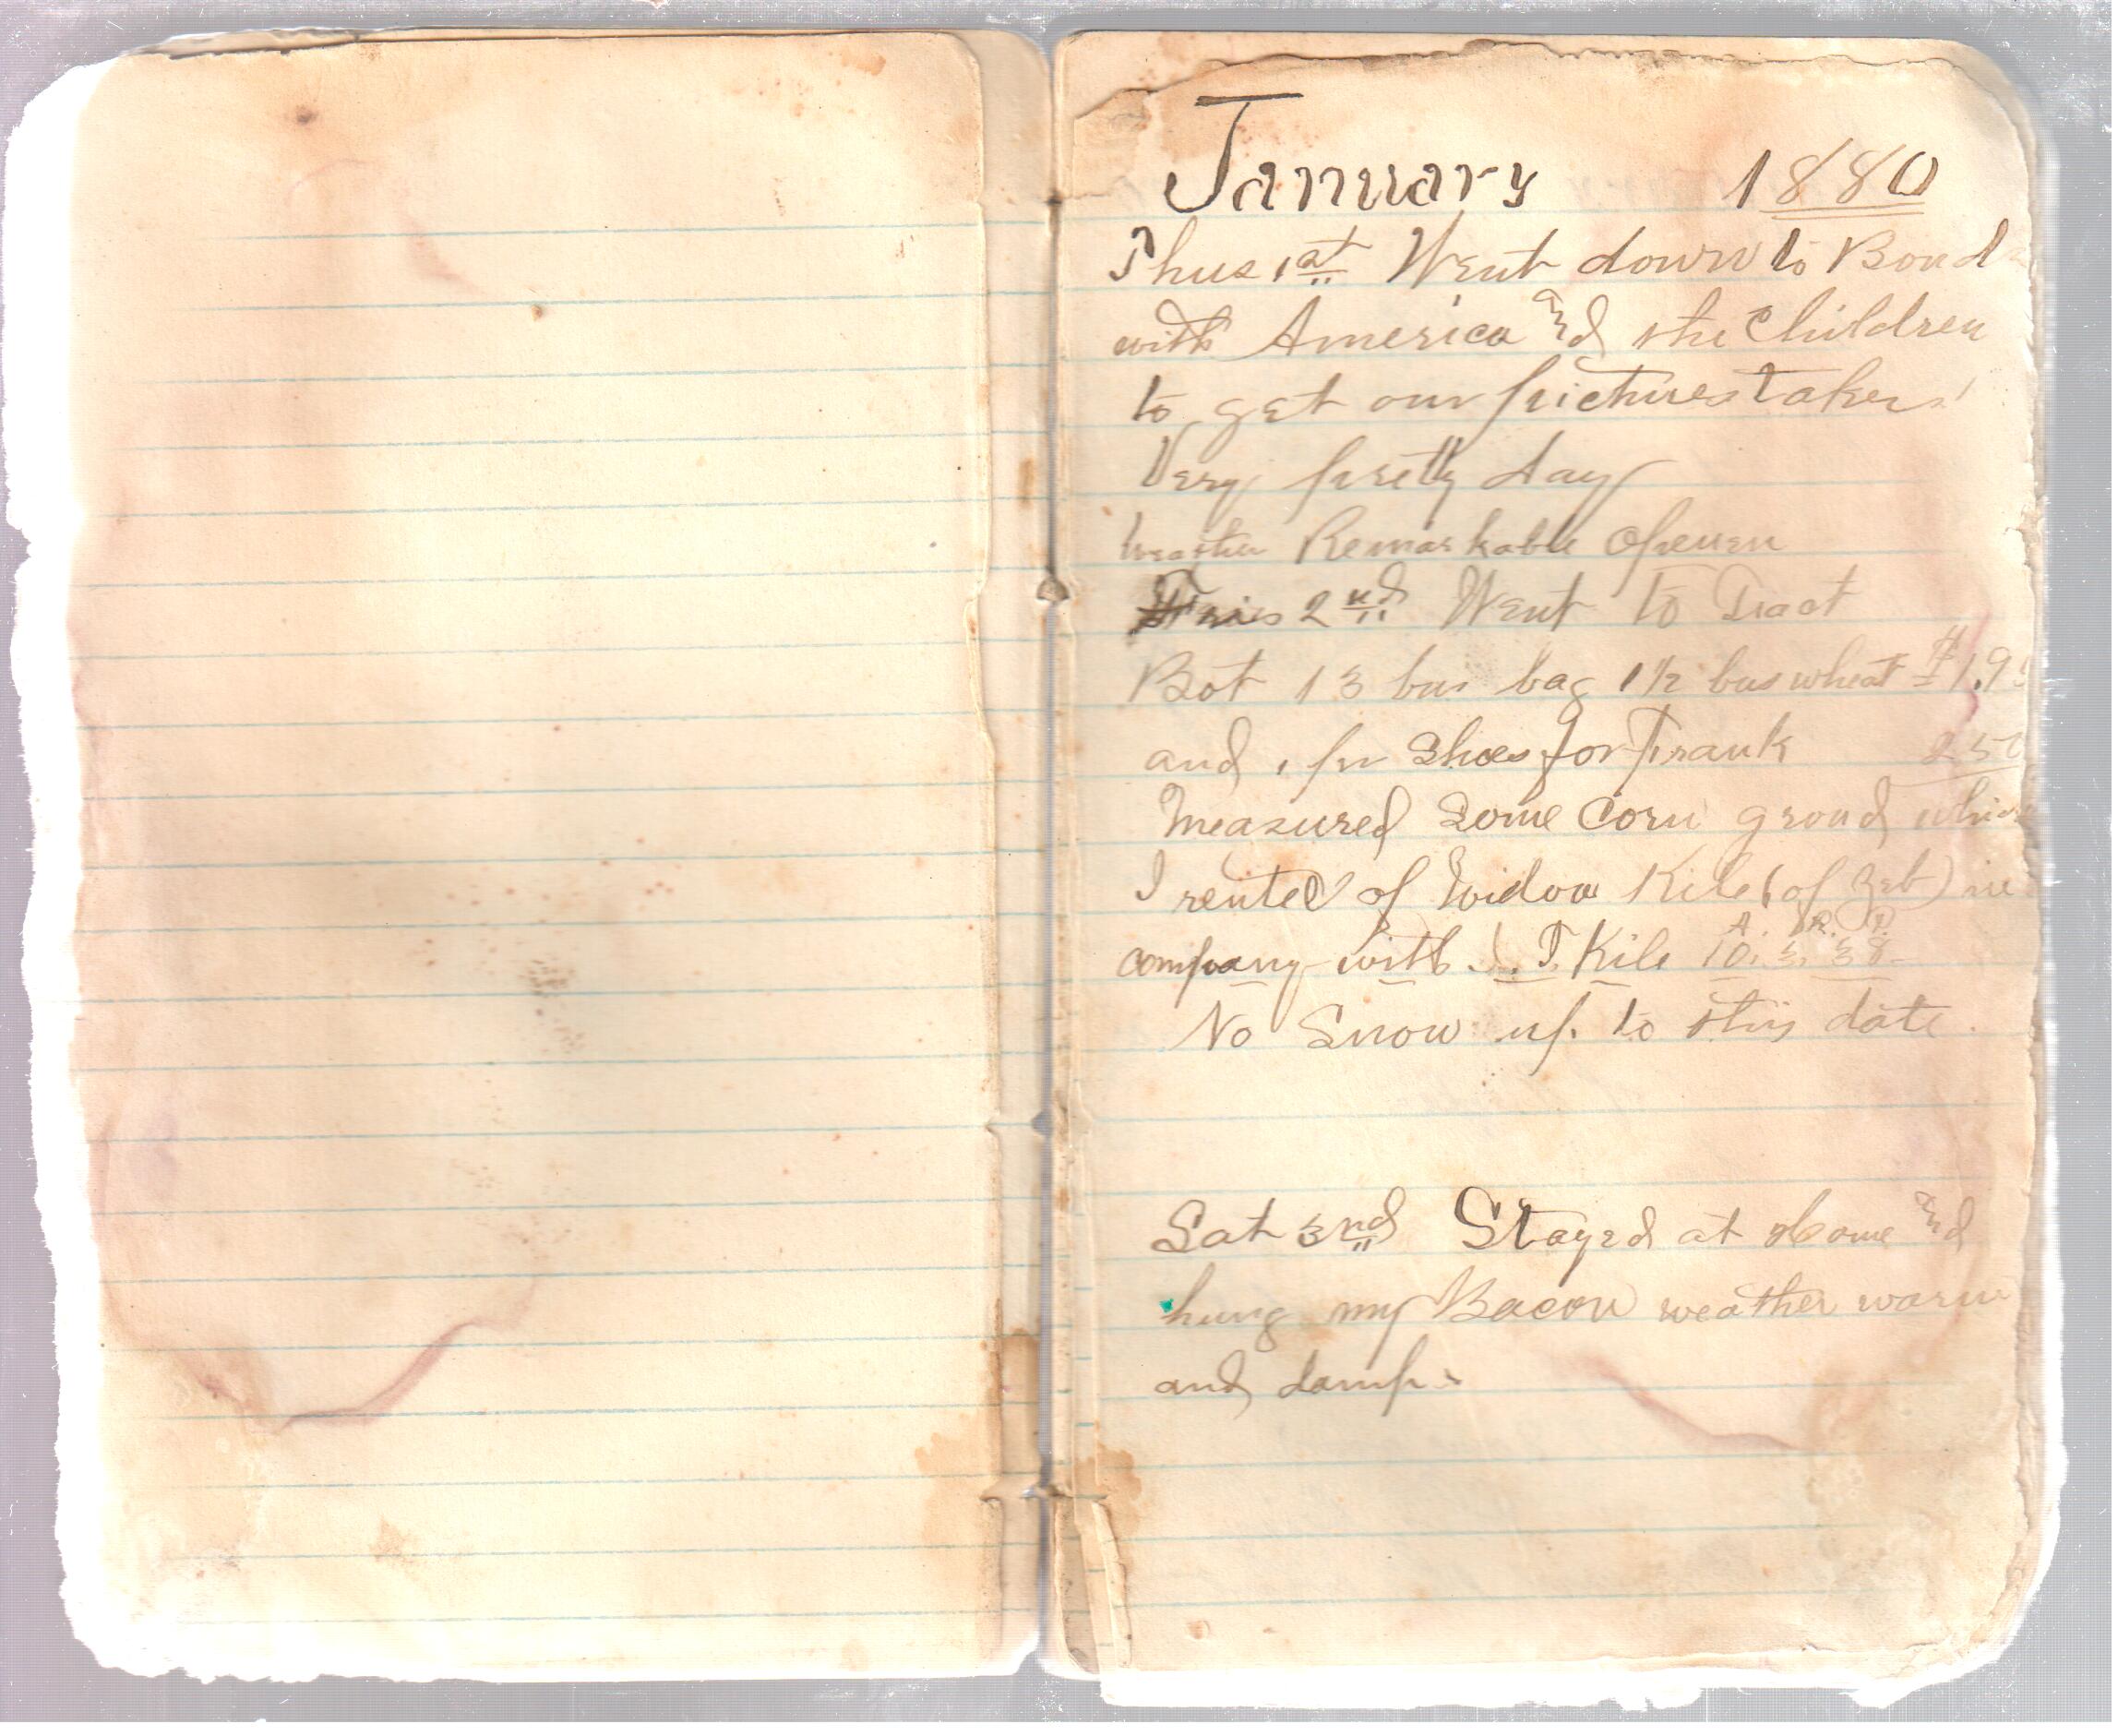 January 1880
Thus 1st Went down to Bond
with America and the Children
to get our pictures taken
Very pretty day
weather Remarkable Openen
Fris 2nd Went to Tract
Bot 1 3 bus bag 1 1/2 bus wheat $1.9
and 1 pr Shoes for Frank 2 50
Measured Some Corn groud which
I rented of Widow Kile (of Zeb) in
company with J. T. Kile A. R. P. 10. 3. 38
No Snow up to this date.
Sat 3rd Stayed at Home and
hung my Bacon weather warm
and damp.